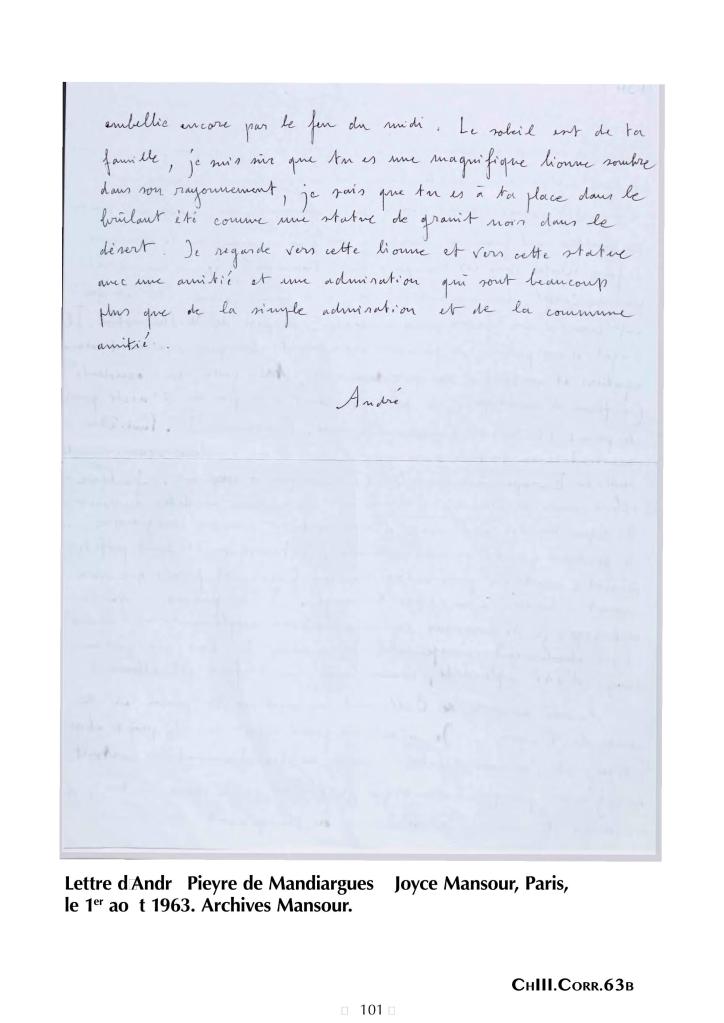 embellie encore par le feu du midi. Le soleil est de ta
famille, je suis sûr que tu es une magnifique lionne sombre
dans son rayonnement, je sais que tu es à ta place dans le
brûlant été comme une statue de granit noir dans le
désert. Je regarde vers cette lionne et vers cette statue
avec une amitié et une admiration qui sont beaucoup
plus que de la simple admiration et de la commune
amitié.
André
Lettre d'Andr Pieyre de Mandiargues Joyce Mansour, Paris,
le 1er ao t 1963. Archives Mansour.
CHIII.CORR.63B
101